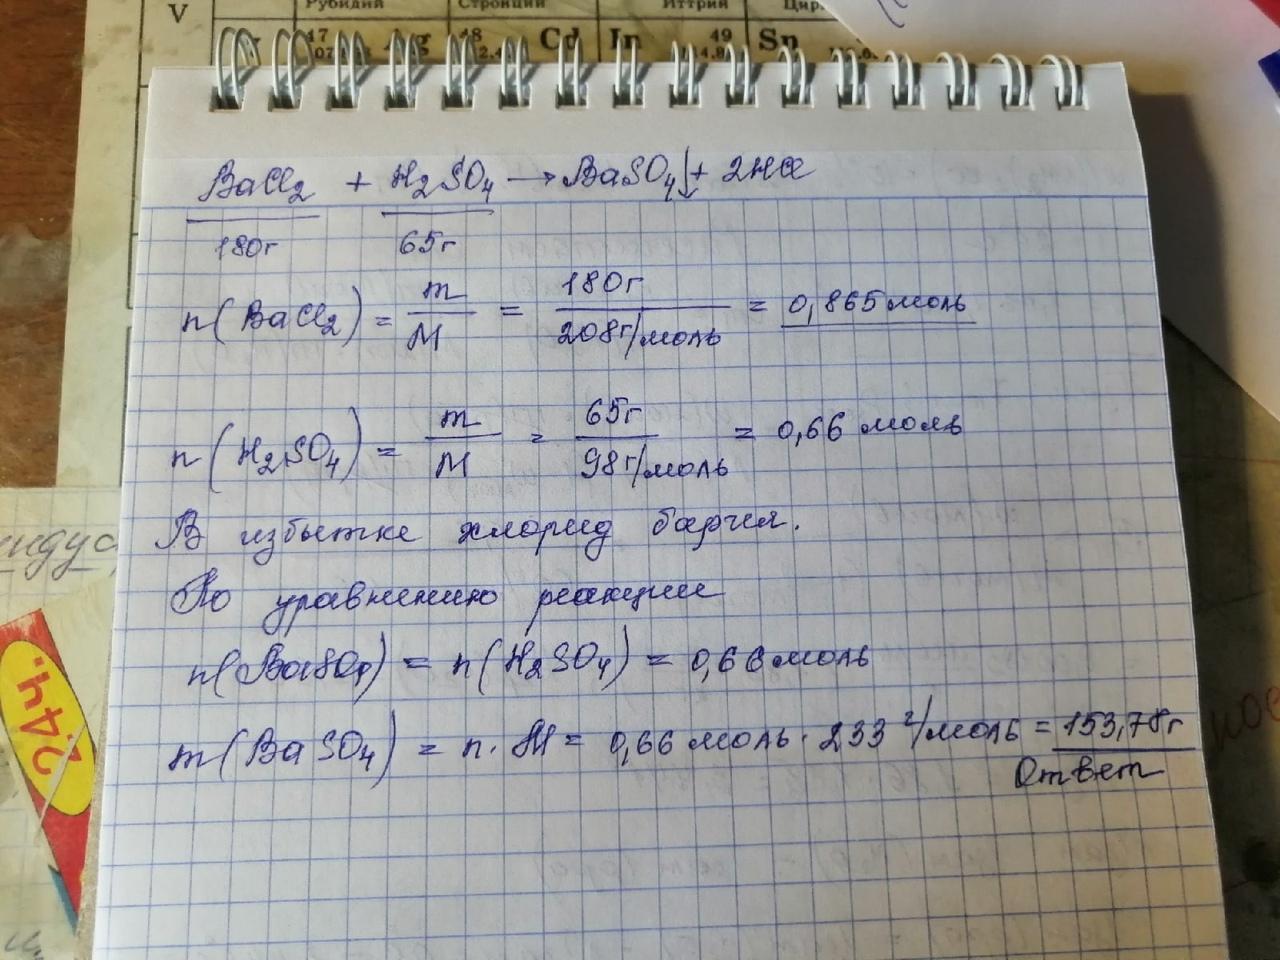 V
Рубидий Стронций Иттрий Цир
47 Ag 48 Cd In 49 Sn
BaCl₂ + H₂SO₄ → BaSO₄↓ + 2HCl
180г 65г
n(BaCl₂) = m/M = 180г/208г/моль = 0,865 моль
n(H₂SO₄) = m/M = 65г/98г/моль = 0,66 моль
В избытке хлорид бария.
По уравнению реакции
n(BaSO₄) = n(H₂SO₄) = 0,66 моль
m(BaSO₄) = n · M = 0,66 моль · 233 г/моль = 153,78г
Ответ
24ч.